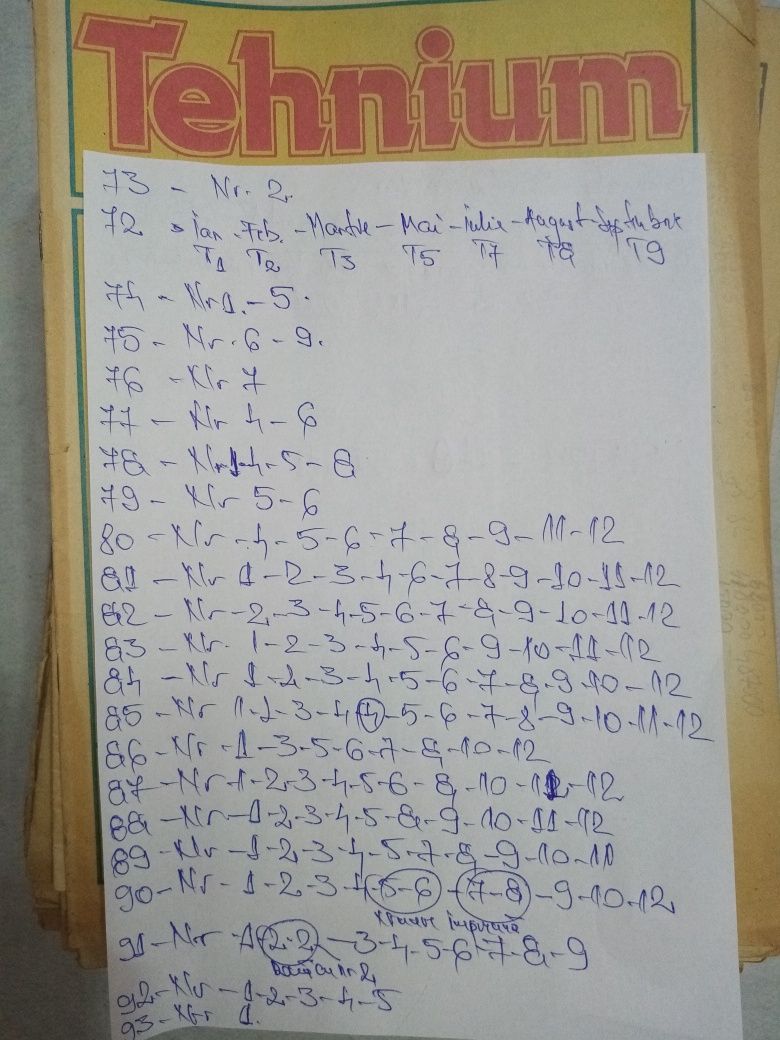 Tehnium
73 - Nr. 2.
72 - ian - Feb. - Martie - Mai - iulie - August - Septembrie
T1 T2 T3 T5 T7 T8 T9
74 - Nr 1. - 5.
75 - Nr. 6 - 9.
76 - Nr 7
77 - Nr 4 - 6
78 - Nr 1-4-5-8
79 - Nr 5-6
80 - Nr - 4 - 5 - 6 - 7 - 8 - 9 - 11 - 12
81 - Nr 1 - 2 - 3 - 4 - 6 - 7 - 8 - 9 - 10 - 11 - 12
82 - Nr - 2 - 3 - 4 - 5 - 6 - 7 - 8 - 9 - 10 - 11 - 12
83 - Nr. 1 - 2 - 3 - 4 - 5 - 6 - 9 - 10 - 11 - 12
84 - Nr 1 - 2 - 3 - 4 - 5 - 6 - 7 - 8 - 9 - 10 - 12
85 - Nr 1 - 2 - 3 - 4 4 - 5 - 6 - 7 - 8 - 9 - 10 - 11 - 12
86 - Nr - 1 - 3 - 5 - 6 - 7 - 8 - 10 - 12
87 - Nr - 1 - 2 - 3 - 4 - 5 - 6 - 8 - 10 - 11 - 12
88 - Nr - 1 - 2 - 3 - 4 - 5 - 8 - 9 - 10 - 11 - 12
89 - Nr - 1 - 2 - 3 - 4 - 5 - 7 - 8 - 9 - 10 - 11
90 - Nr - 1 - 2 - 3 - 4 - 5-6 - 7-8 - 9 - 10 - 12
91 - Nr - 1 2-2 - 3 - 4 - 5 - 6 - 7 - 8 - 9
92 - Nr - 1 - 2 - 3 - 4 - 5
93 - Nr 1.